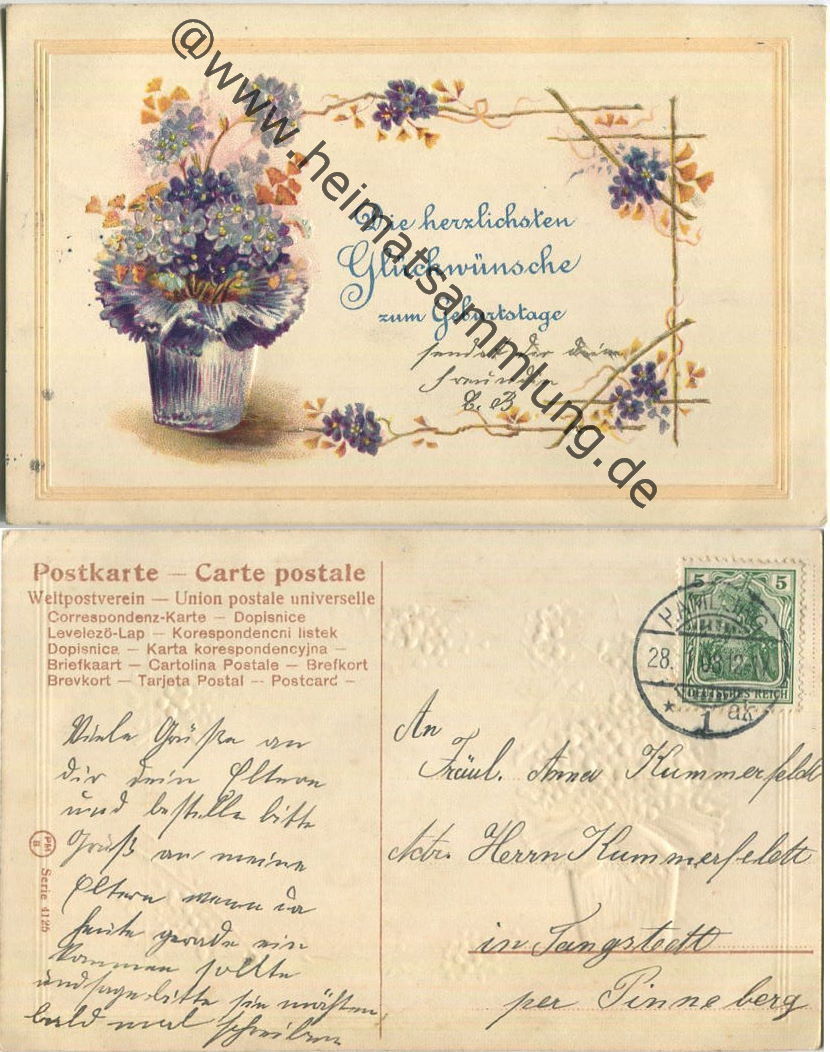 @www.heimatsammlung.de
Die herzlichsten
Glückwünsche
zum Geburtstage
sendet dir deine
Freundin
B.
Postkarte — Carte postale
Weltpostverein — Union postale universelle
Correspondenz-Karte — Dopisnice
Levelező-Lap — Korespondencni listek
Dopisnica — Karta korespondencyjna —
Briefkaart — Cartolina Postale — Brefkort
Brevkort — Tarjeta Postal — Postcard —
5 5
DEUTSCHES REICH
HAMBURG
28. 08 12-1N
* 1 ak
Viele Grüße an
dir dein Eltern
und bestelle bitte
Gruß an meine
Eltern wenn da
heute gerade ein
kommen sollte
und sage bitte sie möchten
bald mal schreiben
An
Fräul. Anna Kummerfeldt
Adr. Herrn Kummerfeldt
in Tangstedt
per Pinneberg
PM
B
Serie 4125